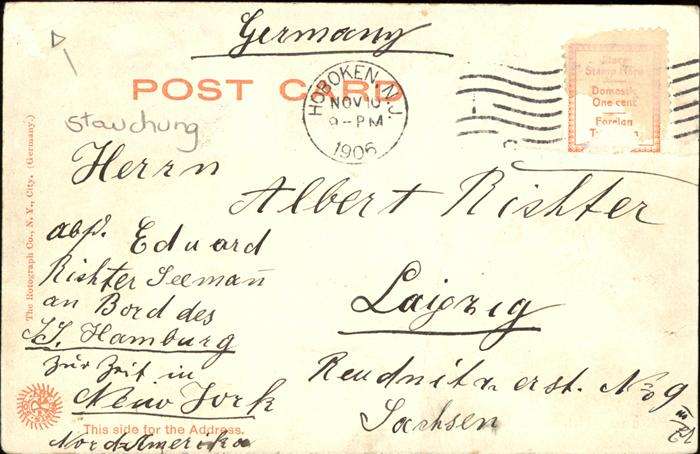 Germany
POST CARD
HOBOKEN, N.J.
NOV 10
9-PM
1906
Stamp Here
Domestic
One cent
Foreign
Stauchung
Herrn
Albert Rishter
abs. Eduard
Rishter Seeman̄
an Bord des
SS. Hamburg
zur Zeit in
New York
Nord Amerika
Laipzig
Reudnitz No 9
Sachsen
The Rotograph Co., N. Y., City. (Germany.)
This side for the Address.